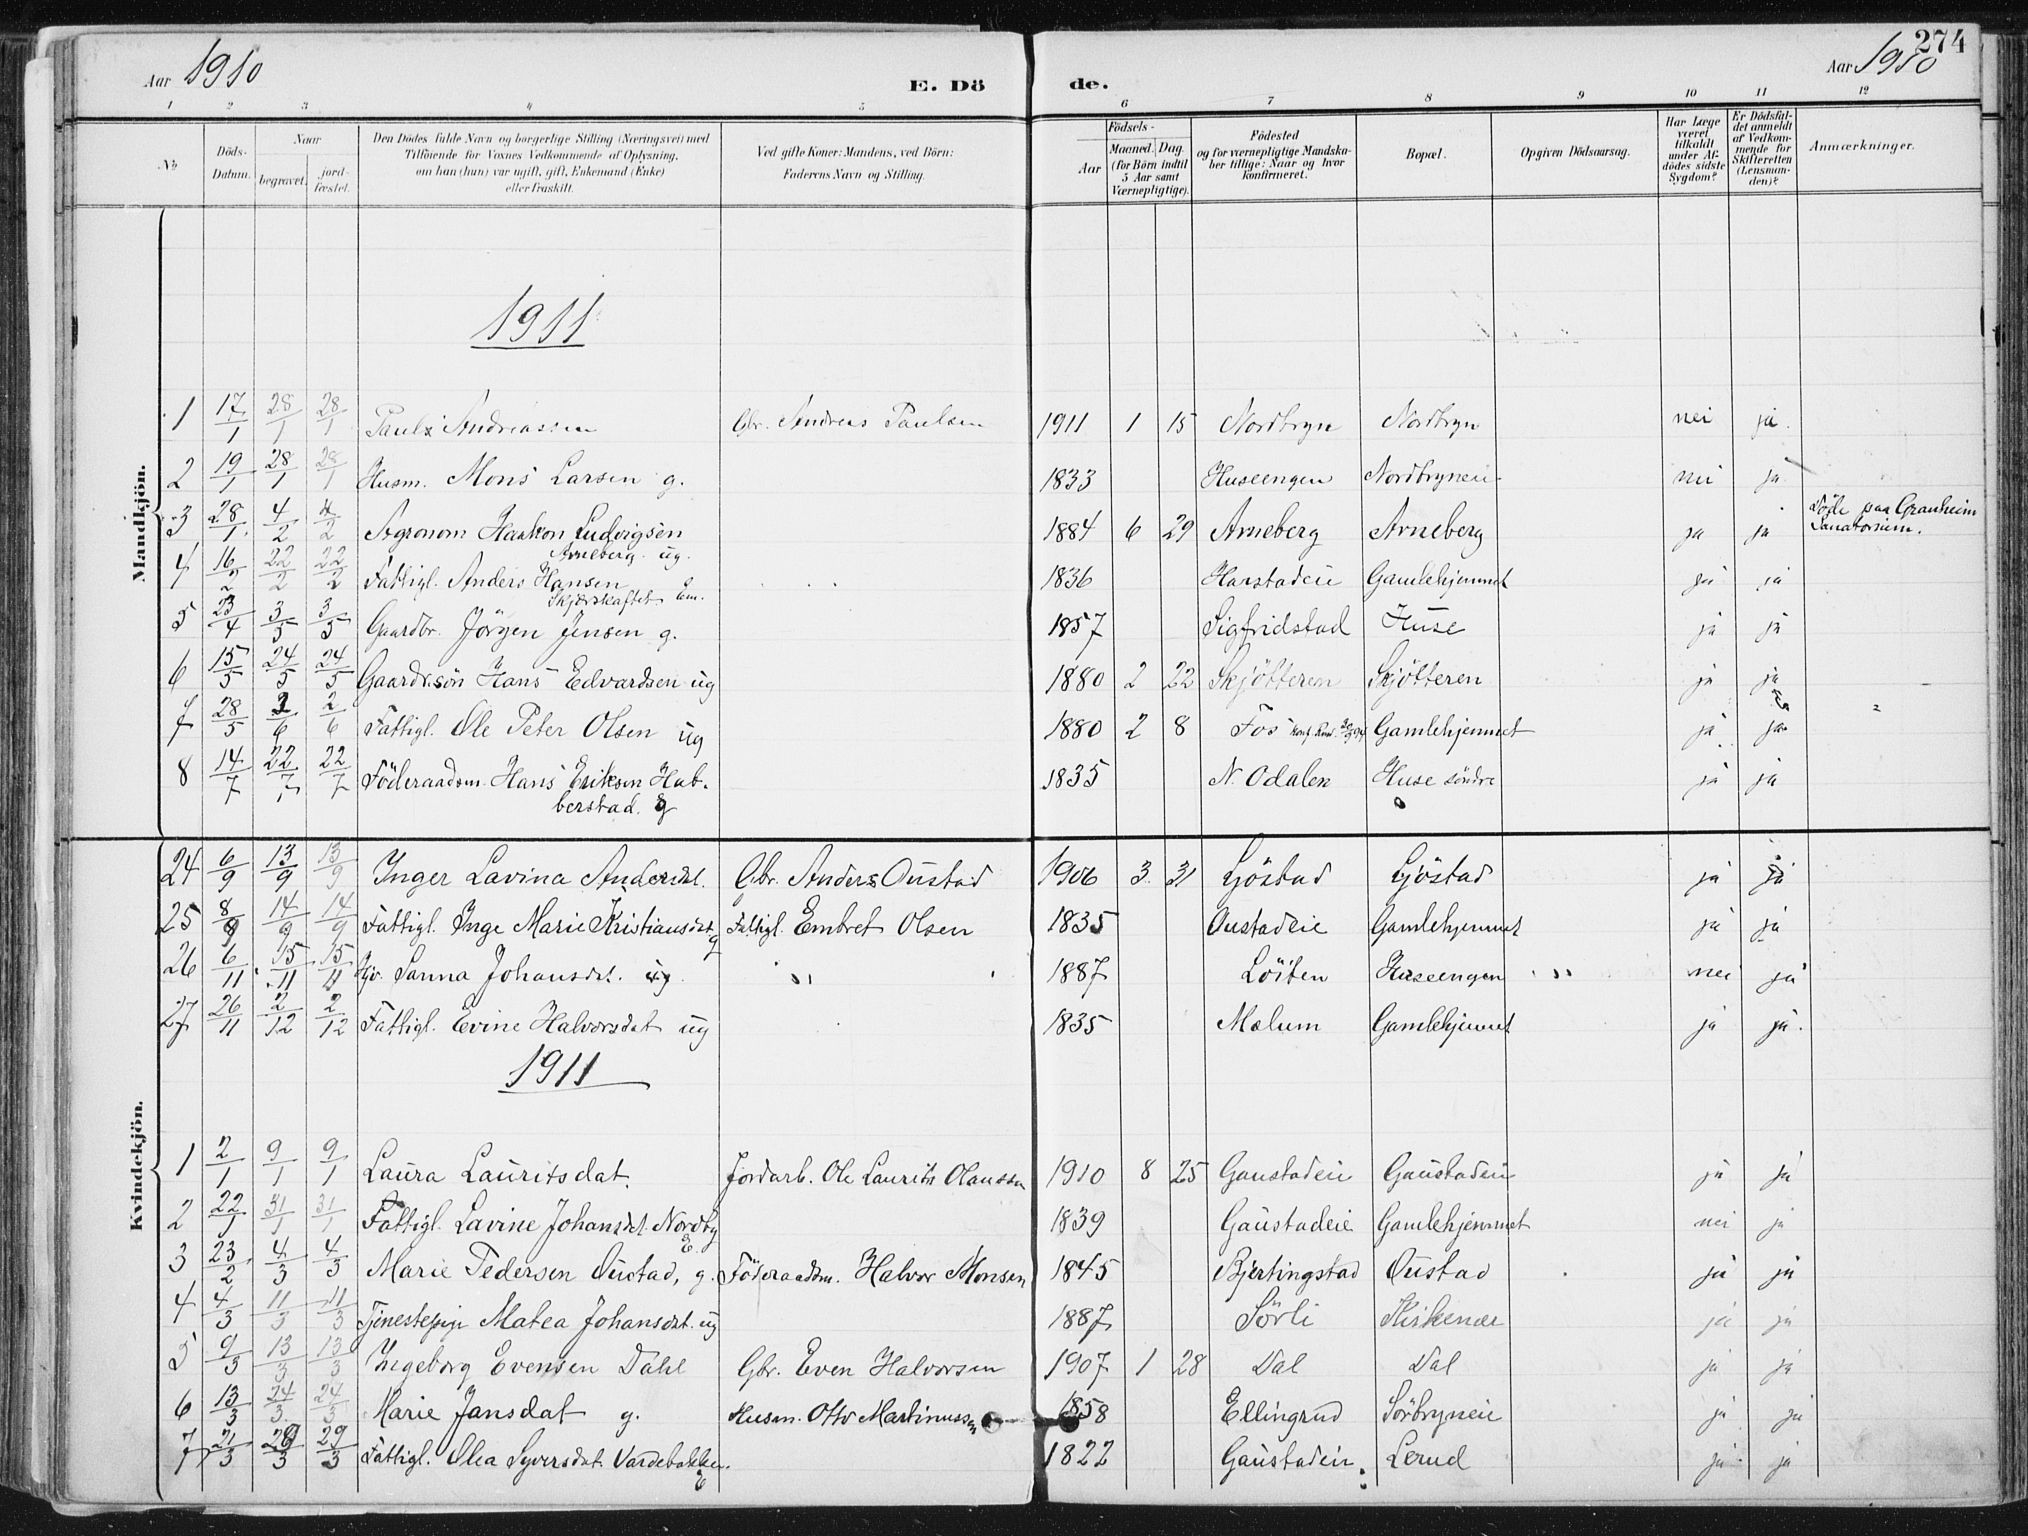 274
Aar 1910
E. Dö
de.
Aar 1910
1 2 3 4 5 6 7 8 9 10 11 12
№
Döds-Datum.
Naar
begravet.
jord-fæstet.
Den Dödes fulde Navn og borgerlige Stilling (Næringsvei) med
Tilföiende for Voxnes Vedkommende af Oplysning,
om han (hun) var ugift, gift, Enkemand (Enke)
eller fraskilt.
Ved gifte Koner: Mandens, ved Börn:
Faderens Navn og Stilling.
Födsels-
Aar
Maaned. Dag.
(for Börn indtil
5 Aar samt
Værnepligtige).
Födested
og for værnepligtige Mandska-
ber tillige: Naar og hvor
konfirmeret.
Bopæl.
Opgiven Dödsaarsag.
Har Læge
været
tilkaldt
under Af-
dödes sidste
Sygdom?
Er Dödsfal-
det anmeldt
af Vedkom-
mende for
Skifteretten
(Lensman-
den)?
Anmærkninger.
Mandkjön.
1911
1 17/1 28/1 28/1 Paul Andreassen Gbr. Andreas Paulsen 1911 1 15 Nordbryn Nordbryn nei ja.
2 19/1 28/1 28/1 Husm. Mons Larsen g. 1833 Huseengen Nordbryneie nei ja
3 28/1 4/2 4/2 Agronom Haakon Ludvigsen 1884 6 29 Arneberg Arneberg ja ja Döde paa Granheim
Arneberg ug. Sanatorium.
4 16/2 22/2 22/2 Fattigl. Anders Hansen 1836 Harstadeie Gamlehjemmet ja ja
Skjærskaftet Em.
5 23/4 3/5 3/5 Gaardbr. Jörgen Jensen g. 1857 Sigfridstad Huse ja ja
6 15/5 24/5 24/5 Gaardbr.sön Hans Edvardsen ug 1880 2 22 Skjötteren Skjötteren ja ja
7 28/5 2/6 2/6 Fattigl. Ole Peter Olsen ug 1880 2 8 Fos Gamlehjemmet ja ja
8 14/7 22/7 22/7 Föderaadsm. Hans Eriksen Hab- 1835 N. Odalen Huse söndre ja ja
berstad. g
Kvindekjön.
24 6/9 13/9 13/9 Inger Lavina Andersdt. Gbr. Anders Oustad 1906 3 31 Gjöstad Gjöstad ja ja
25 8/9 14/9 14/9 Fattigl. Inge Marie Kristiansdt. g Fattigl. Embret Olsen 1835 Oustadeie Gamlehjemmet ja ja
26 6/11 15/11 15/11 Sanna Johansdt. ug. " 1887 Löiten Huseengen " nei ja
27 26/11 2/12 2/12 Fattigl. Evine Halvorsdat ug 1835 Mælum Gamlehjemmet ja ja.
1911
1 2/1 9/1 9/1 Laura Lauritsdat. Jordarb. Ole Laurits Olaussen 1910 8 25 Gaustadeie Gaustadeie ja ja
2 22/1 31/1 31/1 Fattigl. Lavine Johansdt. Nordby E. 1839 Gaustadeie Gamlehjemmet nei ja
3 23/2 4/3 4/3 Marie Pedersen Oustad, g. Föderaadsm. Halvor Monsen 1845 Bjertingstad Oustad ja ja
4 4/3 11/3 11/3 Tjenestepige Matea Johansdt. ug 1887 Sörli Kirkenær ja ja
5 9/3 13/3 13/3 Ingeborg Evensen Dahl Gbr. Even Halvorsen 1907 1 28 Dal Dal ja ja
6 13/3 24/3 24/3 Marie Jansdat g. Husm. Otto Martinussen 1858 Ellingrud Sörbryneie ja ja
7 21/3 29/3 29/3 Fattigl. Olea Syversdat. Vardebakken. E 1822 Gaustadeie Lerud ja ja